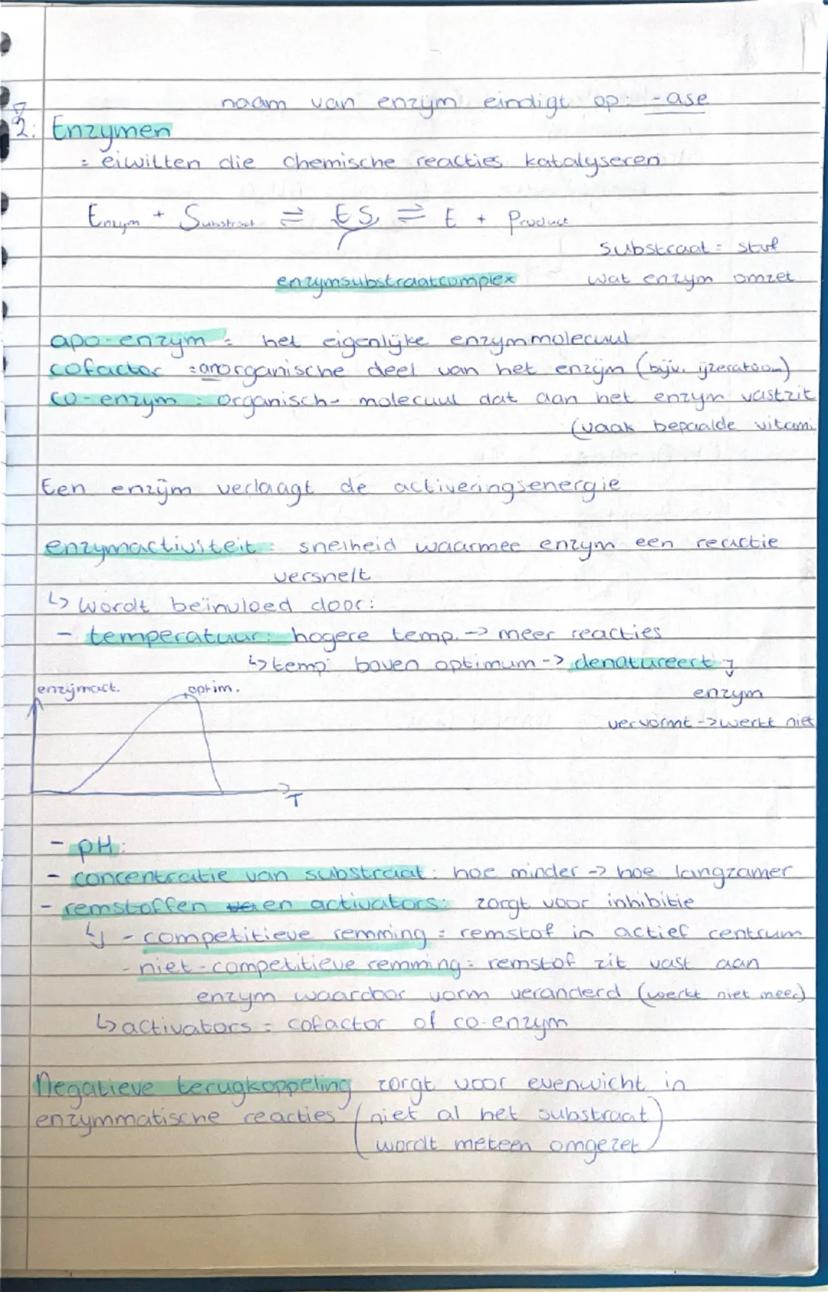 naam van enzym eindigt op: -ase
2: Enzymen
= eiwitten die chemische reacties katalyseren
Enzym + Substraat ⇌ ES ⇌ E + Product
substraat = stof
enzymsubstraatcomplex wat enzym omzet
apo-enzym = het eigenlijke enzymmolecuul
cofactor = anorganische deel van het enzijm (bijv. ijzeratoom)
co-enzym = organisch- molecuul dat aan het enzym vastzit
(vaak bepaalde vitam
Een enzijm verlaagt de activeringsenergie
enzymactiviteit = snelheid waarmee enzym een reactie
versnelt
↳ wordt beïnvloed door:
- temperatuur: hogere temp. -> meer reacties
↳ temp boven optimum -> denatureert
enzijmact. optim. enzym
vervormt -> werkt niet
T
- pH:
- concentratie van substraat: hoe minder -> hoe langzamer
- remstoffen en activators: zorgt voor inhibitie
↳ - competitieve remming = remstof in actief centrum
- niet-competitieve remming = remstof zit vast aan
enzym waardoor vorm veranderd (werkt niet meer)
↳ activators = cofactor of co-enzym
Negatieve terugkoppeling zorgt voor evenwicht in
enzymmatische reacties (niet al het substraat
wordt meteen omgezet)